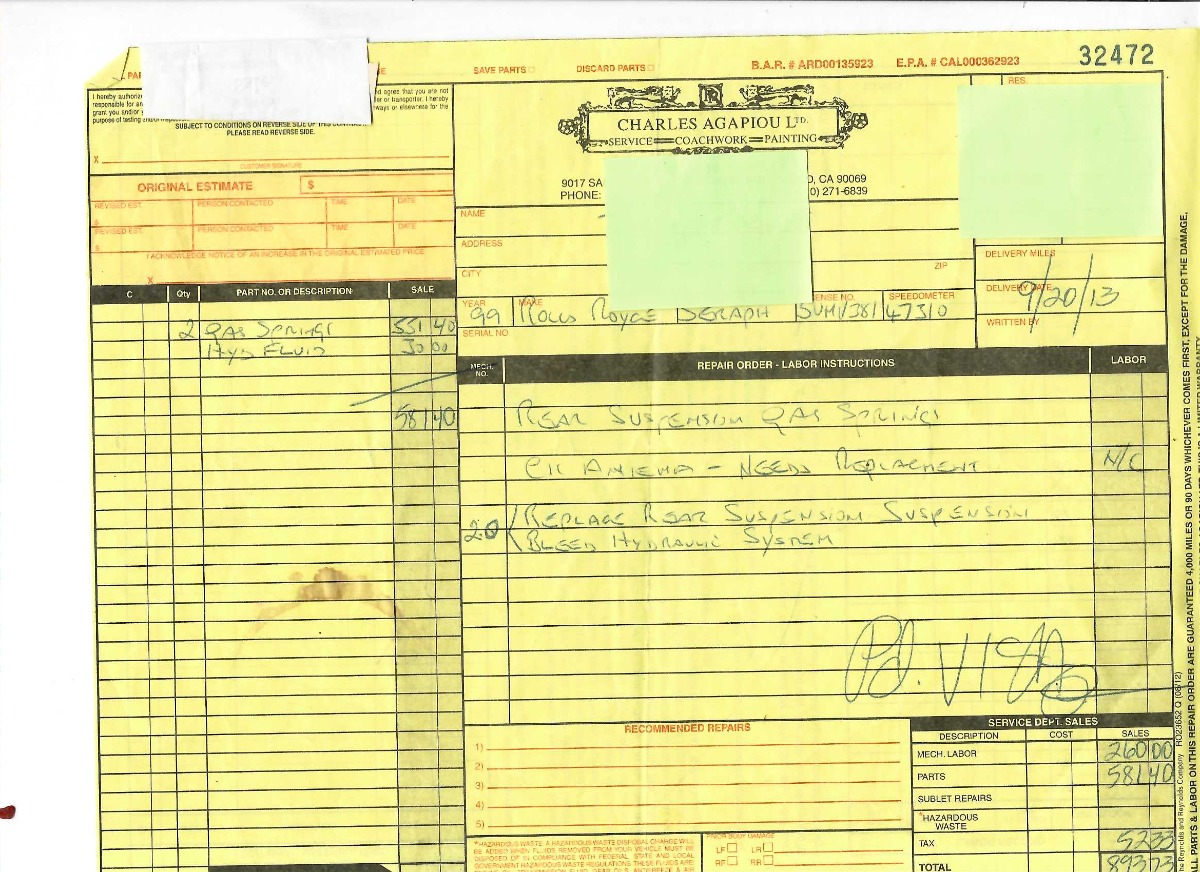 SAVE PARTS DISCARD PARTS B.A.R. # ARD00135923 E.P.A. # CAL000362923 32472
RES.
I hereby authoriz
responsible for an
grant you and/or y
purpose of testing and/or
d agree that you are not
ler or transporter. I hereby
ways or elsewhere for the
SUBJECT TO CONDITIONS ON REVERSE SIDE OF THIS
PLEASE READ REVERSE SIDE.
X
CUSTOMER SIGNATURE
CHARLES AGAPIOU LTD.
SERVICE COACHWORK PAINTING
9017 SA , CA 90069
PHONE: 0) 271-6839
ORIGINAL ESTIMATE $
REVISED EST. PERSON CONTACTED TIME DATE
$
REVISED EST. PERSON CONTACTED TIME DATE
$
I ACKNOWLEDGE NOTICE OF AN INCREASE IN THE ORIGINAL ESTIMATED PRICE
X
NAME
ADDRESS
CITY ZIP
DELIVERY MILES
DELIVERY DATE 9/20/13
WRITTEN BY
YEAR MAKE ENSE NO. SPEEDOMETER
99 Rolls Royce SERAPH 5UMI381 47310
SERIAL NO.
C Qty PART NO. OR DESCRIPTION SALE
2 GAS SPRINGS 551 40
HYD FLUID 30 00
581 40
MECH. NO. REPAIR ORDER - LABOR INSTRUCTIONS LABOR
REAR SUSPENSION GAS SPRINGS
CK ANTENNA - NEEDS REPLACMENT N/C
20 REPLACE REAR SUSPENSION SUSPENSION
BLEED HYDRAULIC SYSTEM
Pd. VISA
RECOMMENDED REPAIRS
1)
2)
3)
4)
5)
SERVICE DEPT. SALES
DESCRIPTION COST SALES
MECH. LABOR 260 00
PARTS 581 40
SUBLET REPAIRS
*HAZARDOUS WASTE
TAX 52 33
TOTAL 893 73
*HAZARDOUS WASTE: A HAZARDOUS WASTE DISPOSAL CHARGE WILL
BE ADDED WHEN FLUIDS REMOVED FROM YOUR VEHICLE MUST BE
DISPOSED OF IN COMPLIANCE WITH FEDERAL, STATE AND LOCAL
GOVERNMENT HAZARDOUS WASTE REGULATIONS. THESE FLUIDS ARE
PRIOR BODY DAMAGE
LF LR
RF RR
he Reynolds and Reynolds Company RO23652 Q (08/12)
LL PARTS & LABOR ON THIS REPAIR ORDER ARE GUARANTEED 4,000 MILES OR 90 DAYS WHICHEVER COMES FIRST, EXCEPT FOR THE DAMAGE,